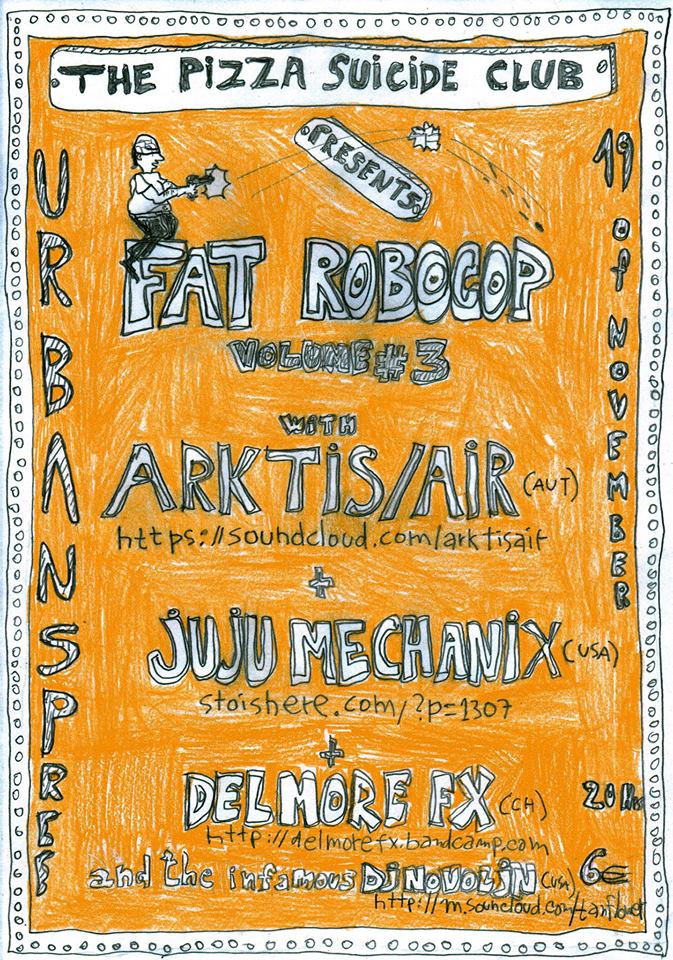 THE PIZZA SUICIDE CLUB
PRESENTS
FAT ROBOCOP
VOLUME #3
WITH
ARKTIS/AIR (AUT)
https://soundcloud.com/arktisair
+
JUJU MECHANIX (USA)
stoishere.com/?p=1307
+
DELMORE FX (CH)
http://delmorefx.bandcamp.com
and the infamous DJ NOVOLIN (USA)
http://m.soundcloud.com/tanflower
URBAN SPREE
19 of NOVEMBER
20 Hrs
6€